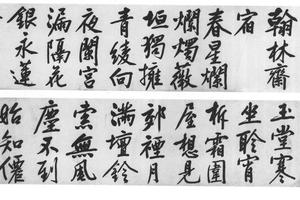 翰林齋
宿
春星爛
爛燭薇
垣獨擁
青綾向
夜闌宮
漏隔花
銀永蓮
玉堂寒
坐聆宵
柝霜圍
屋想見
郊禋月
滿壇鈴
索無風
塵不到
始知僊